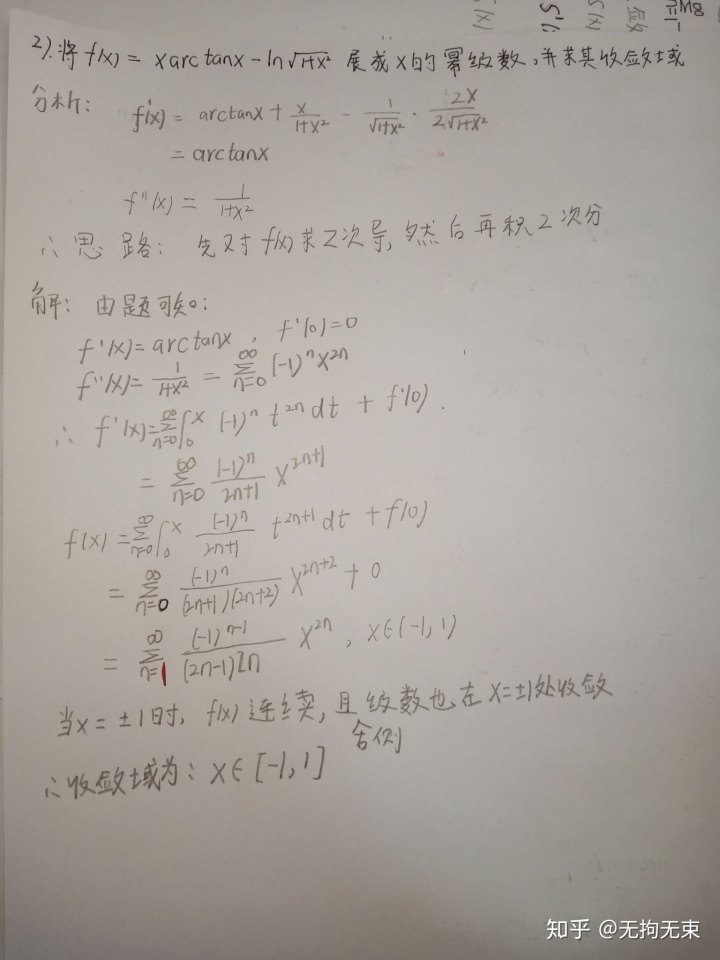 2). 将 f(x) = x arctanx - ln√1+x² 展成 x 的幂级数，并求其收敛域
分析： f'(x) = arctanx + x/(1+x²) - 1/√1+x² · 2x/(2√1+x²)
= arctanx
f''(x) = 1/(1+x²)
∴ 思路： 先对 f(x) 求2次导，然后再积2次分
解： 由题可知：
f'(x) = arctanx , f'(0) = 0
f''(x) = 1/(1+x²) = ∑_{n=0}^{∞} (-1)^n x^{2n}
∴ f'(x) = ∑_{n=0}^{∞} ∫_0^x (-1)^n t^{2n} dt + f'(0) .
= ∑_{n=0}^{∞} (-1)^n/(2n+1) x^{2n+1}
f(x) = ∑_{n=0}^{∞} ∫_0^x (-1)^n/(2n+1) t^{2n+1} dt + f(0)
= ∑_{n=0}^{∞} (-1)^n/((2n+1)(2n+2)) x^{2n+2} + 0
= ∑_{n=1}^{∞} (-1)^{n-1}/((2n-1)2n) x^{2n} , x∈(-1,1)
当 x = ±1 时， f(x) 连续，且级数也在 x=±1处收敛
∴ 收敛域为： x∈[-1,1]
知乎 @无拘无束